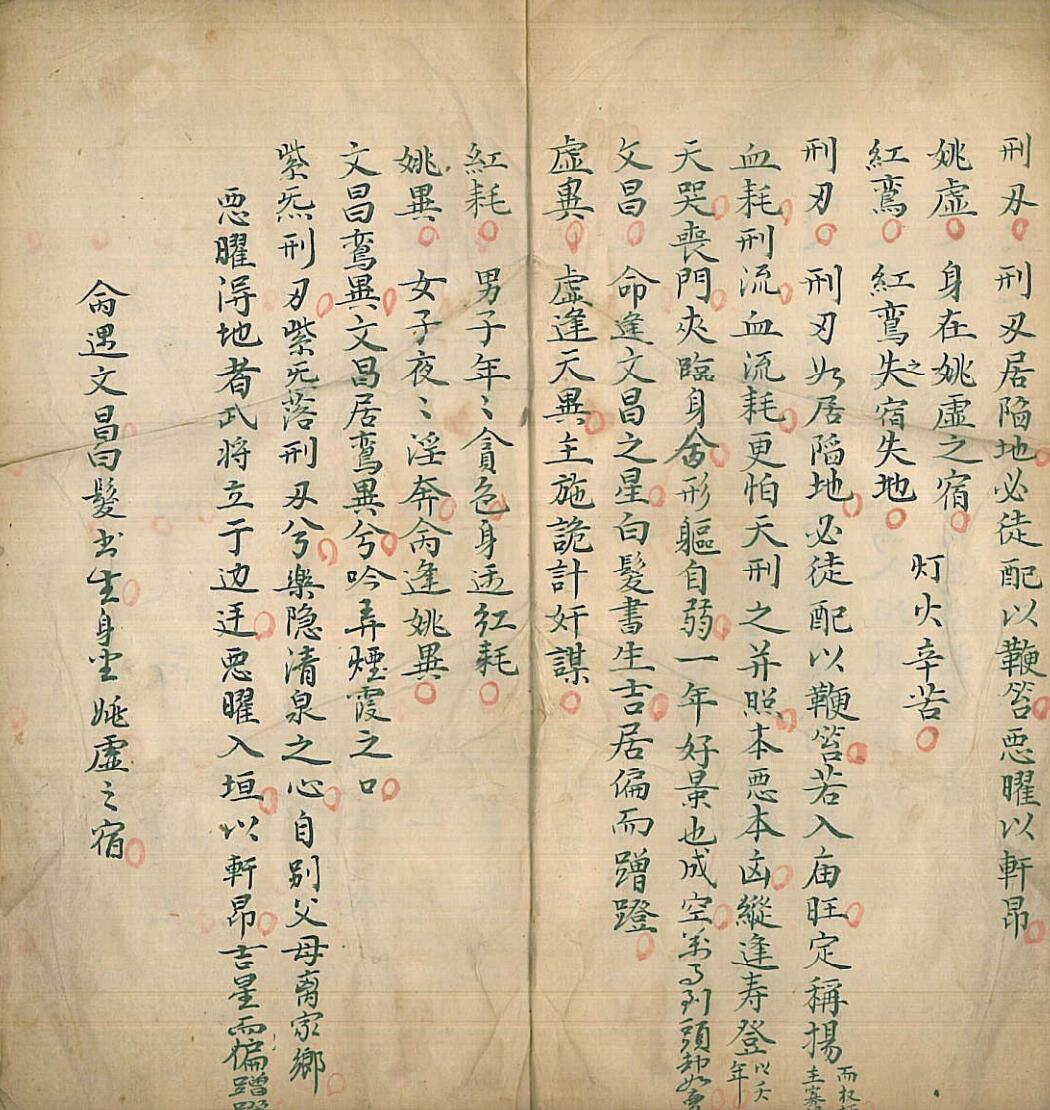 刑刃 刑刃居陷地必徒配以鞭笞悪曜以軒昂
姚虛 身在姚虛之宿 灯火辛苦
紅鸞 紅鸞失之宿失地
刑刃 刑刃如居陷地必徒配以鞭笞若入庙旺定稱揚而权
血耗刑流血流耗更怕天刑之并照本悪本凶縱逢寿登以夭年
天哭喪門夾臨身命形軀自弱一年好景也成空万事到頭却如
文昌 命逢文昌之星白髮書生吉居偏而蹭蹬
虛異 虛逢天異主施詭計奸謀
紅耗 男子年〻貪色身逢紅耗
姚異 女子夜〻淫奔命逢姚異
文昌鸞異文昌居鸞異兮吟弄煙霞之口
紫炁刑刃紫炁落刑刃兮樂隐清泉之心自别父母离家鄉
悪曜得地者武将立于边廷悪曜入垣以軒昂吉星而偏蹭蹬
命遇文昌白髮书生身坐姚虛之宿